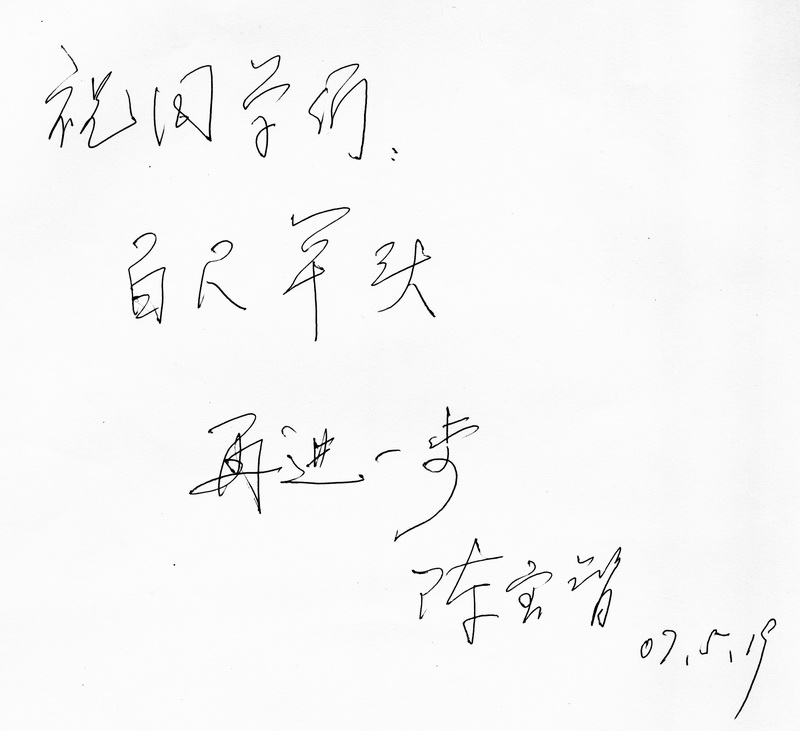 祝同学们:
百尺竿头
再进一步
陈宝智
07.5.19